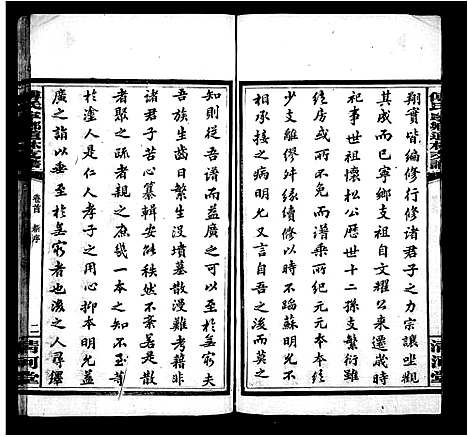 翔實皆編修行修諸君子之力宗讓坐觀
其成而已寧鄉支祖自文耀公衡公
析車世祖懷松公歷世十二孫支繁衍
經房或有一而譜乘元元本本秩不
少支離僇然續修以時不蹈蘇明允
相承接之病之言自吾之後而莫之
知則從吾益廣之可以至於無窮夫
吾族生齒日繁墳墓散漫難考藉非
諸君子苦心纂輯安能秩然不紊若是散
者聚之疏者親之庶幾一本之不至等
於塗人是仁人孝子之用心抑本明允益
廣之詣以至於無窮者也後之人尋繹
卷首
新序
二
清河堂
清河堂